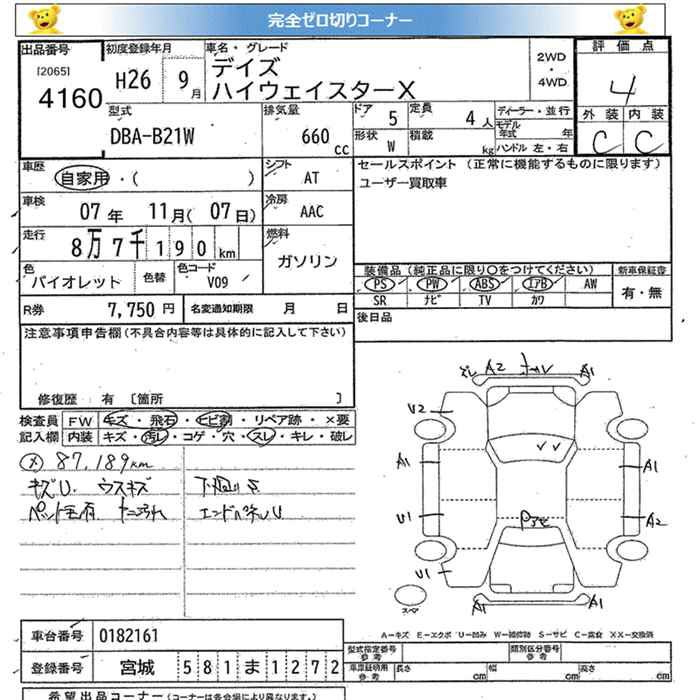 完全ゼロ切りコーナー
出品番号 初度登録年月 車名・グレード 2WD・4WD 評価点
[2065] 4160 H26 9月 デイズ
ハイウェイスターX 4
型式 排気量 ドア 5 定員 4人 ディーラー・並行 外装 内装
DBA-B21W 660cc 形状 W 積載 kg モデル年式 年 C C
ハンドル 左・右
車歴 シフト セールスポイント (正常に機能するものに限ります)
自家用・( ) AT ユーザー買取車
車検 冷房
07年 11月(07日) AAC
走行 燃料
8万7千190km ガソリン
色 色替 色コード 装備品(純正品に限り○をつけてください) 新車保証書
バイオレット V09 PS PW ABS エアB AW 有・無
SR ナビ TV カワ
R券 7,750円 名変通知期限 月 日 後日品
注意事項申告欄(不具合内容等は具体的に記入して下さい)
修復歴 有 [箇所 ]
検査員 FW キズ・飛石・ヒビ割・リペア跡・×要
記入欄 内装 キズ・汚レ・コゲ・穴・スレ・キレ・破レ
(メ) 87,189km
キズU ウスキズ 下廻りS
ペット毛有
A2 A1
U2
A1 A1
U1 A2
U1
A1 A1
スペア
A-キズ E-エクボ U-凹み W-補修跡 S-サビ C-腐食 XX-交換済
車台番号 0182161 型式指定番号 参考 類別区分番号 参考
登録番号 宮城 581ま1272 車庫証明用 参考 長さ cm 幅 cm 高さ cm
希望出品コーナー(コーナーは各会場により異なります。)